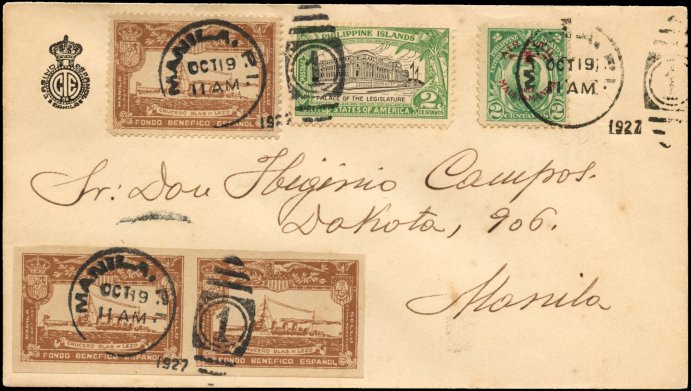 MANILA. P.I.
OCT 19
11 AM
1
1927
MANILA
CRUCERO BLAS DE LEZO
FONDO BENEFICO ESPAÑOL
PHILIPPINE ISLANDS
PALACE OF THE LEGISLATURE
2
CENTAVOS
STATES OF AMERICA
2 CENTAVOS 2
OCT 19
11 AM
1
1927
Sr. Don Higinio Campos.
Dakota, 906.
Manila
MANILA. P.I.
OCT 19
11 AM
1
1927
CRUCERO BLAS DE LEZO
FONDO BENEFICO ESPAÑOL
CRUCERO BLAS DE LEZO
FONDO BENEFICO ESPAÑOL